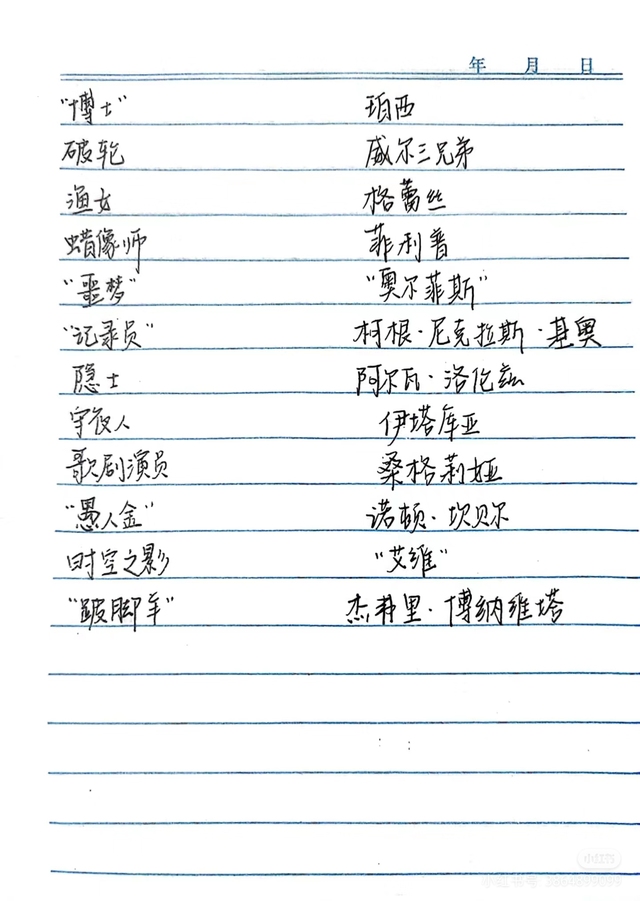 年 月 日
“博士” 珀西
破轮 威尔三兄弟
渔女 格蕾丝
蜡像师 菲利普
“噩梦” “奥尔菲斯”
“记录员” 柯根·尼克拉斯·基奥
隐士 阿尔瓦·洛伦兹
守夜人 伊塔库亚
歌剧演员 桑格莉娅
“愚人金” 诺顿·坎贝尔
时空之影 “艾维”
“跛脚羊” 杰弗里·博纳维塔
小红书